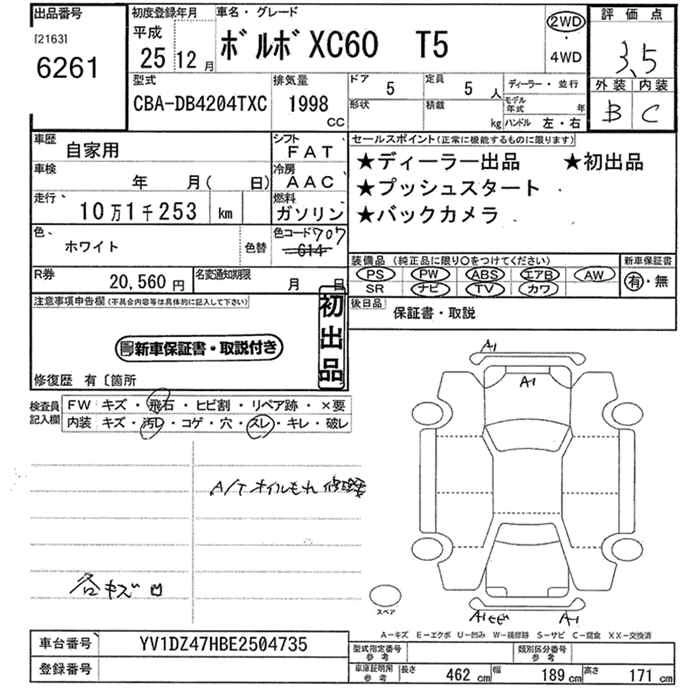 出品番号
[2163]
6261
初度登録年月
平成
25 12月
車名・グレード
ボルボ XC60 T5
2WD
・
4WD
評価点
3.5
外装 内装
B C
型式
CBA-DB4204TXC
排気量
1998
cc
ドア
5
定員
5 人
形状
積載
kg
ディーラー・並行
モデル年式 年
ハンドル 左・右
車歴
自家用
シフト
FAT
車検
年 月( 日)
冷房
AAC
走行
10万1千253 km
燃料
ガソリン
色
ホワイト
色替
色コード 707
614
R券
20,560円
名変通知期限
月 日
セールスポイント(正常に機能するものに限ります)
★ディーラー出品 ★初出品
★プッシュスタート
★バックカメラ
装備品(純正品に限り○をつけてください)
PS PW ABS エアB AW
SR ナビ TV カワ
新車保証書
有・無
後日品
保証書・取説
注意事項申告欄(不具合内容等は具体的に記入して下さい)
新車保証書・取説付き
初出品
修復歴 有〔箇所
検査員記入欄
FW キズ・飛石・ヒビ割・リペア跡・×要
内装 キズ・汚レ・コゲ・穴・スレ・キレ・破レ
A/Tオイルもれ
各キズ凹
A1
A1
スペア
A1
A-キズ E-エクボ U-凹み W-補修跡 S-サビ C-腐食 XX-交換済
車台番号
YV1DZ47HBE2504735
登録番号
型式指定番号
参考
類別区分番号
参考
車庫証明用
参考
長さ 462 cm 幅 189 cm 高さ 171 cm